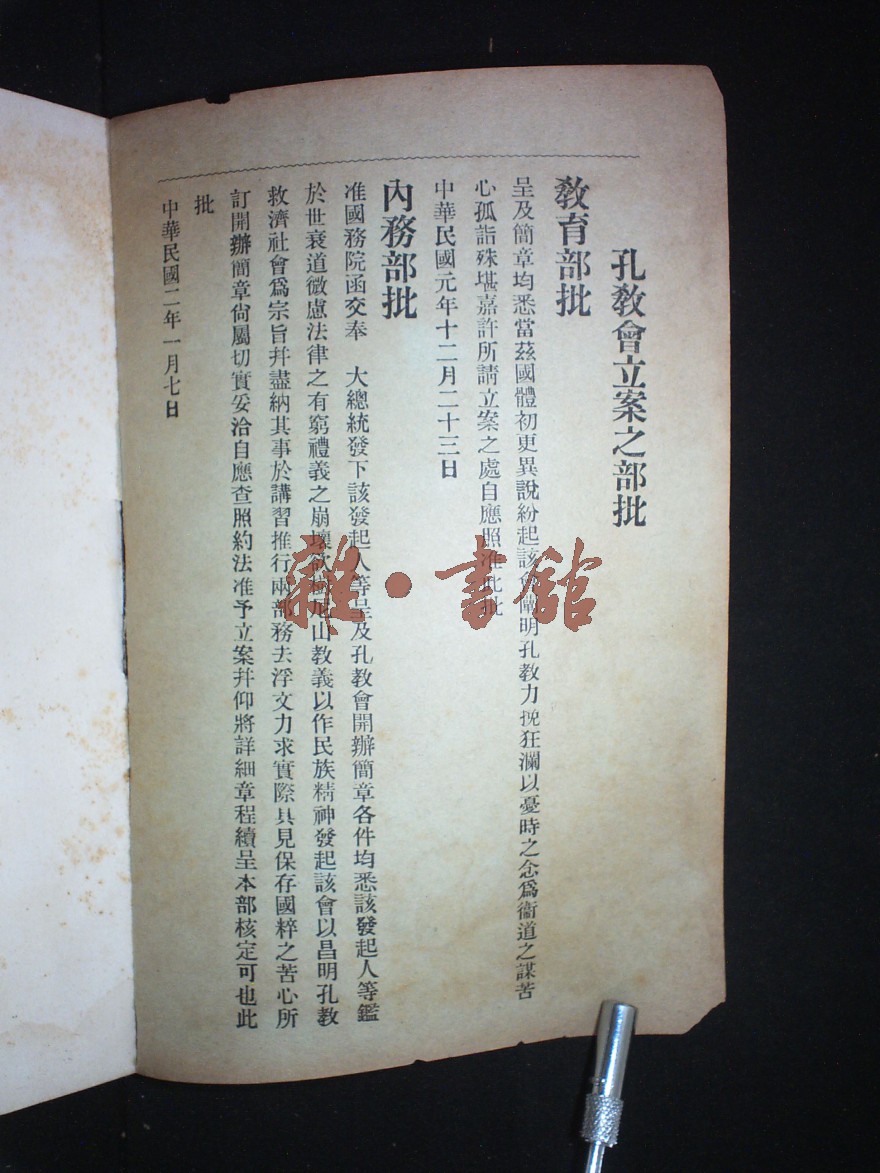 孔教會立案之部批
教育部批
呈及簡章均悉當茲國體初更異說紛起該會闡明孔教力挽狂瀾以憂時之念爲衞道之謀苦
心孤詣殊堪嘉許所請立案之處自應照准此批
中華民國元年十二月二十三日
內務部批
准國務院函交奉 大總統發下該發起人等呈及孔教會開辦簡章各件均悉該發起人等鑑
於世衰道微慮法律之有窮禮義之崩壞欲 尼山教義以作民族精神發起該會以昌明孔教
救濟社會爲宗旨幷盡納其事於講習推行兩部務去浮文力求實際具見保存國粹之苦心所
訂開辦簡章尙屬切實妥洽自應查照約法准予立案幷仰將詳細章程續呈本部核定可也此
批
中華民國二年一月七日
雜·書館